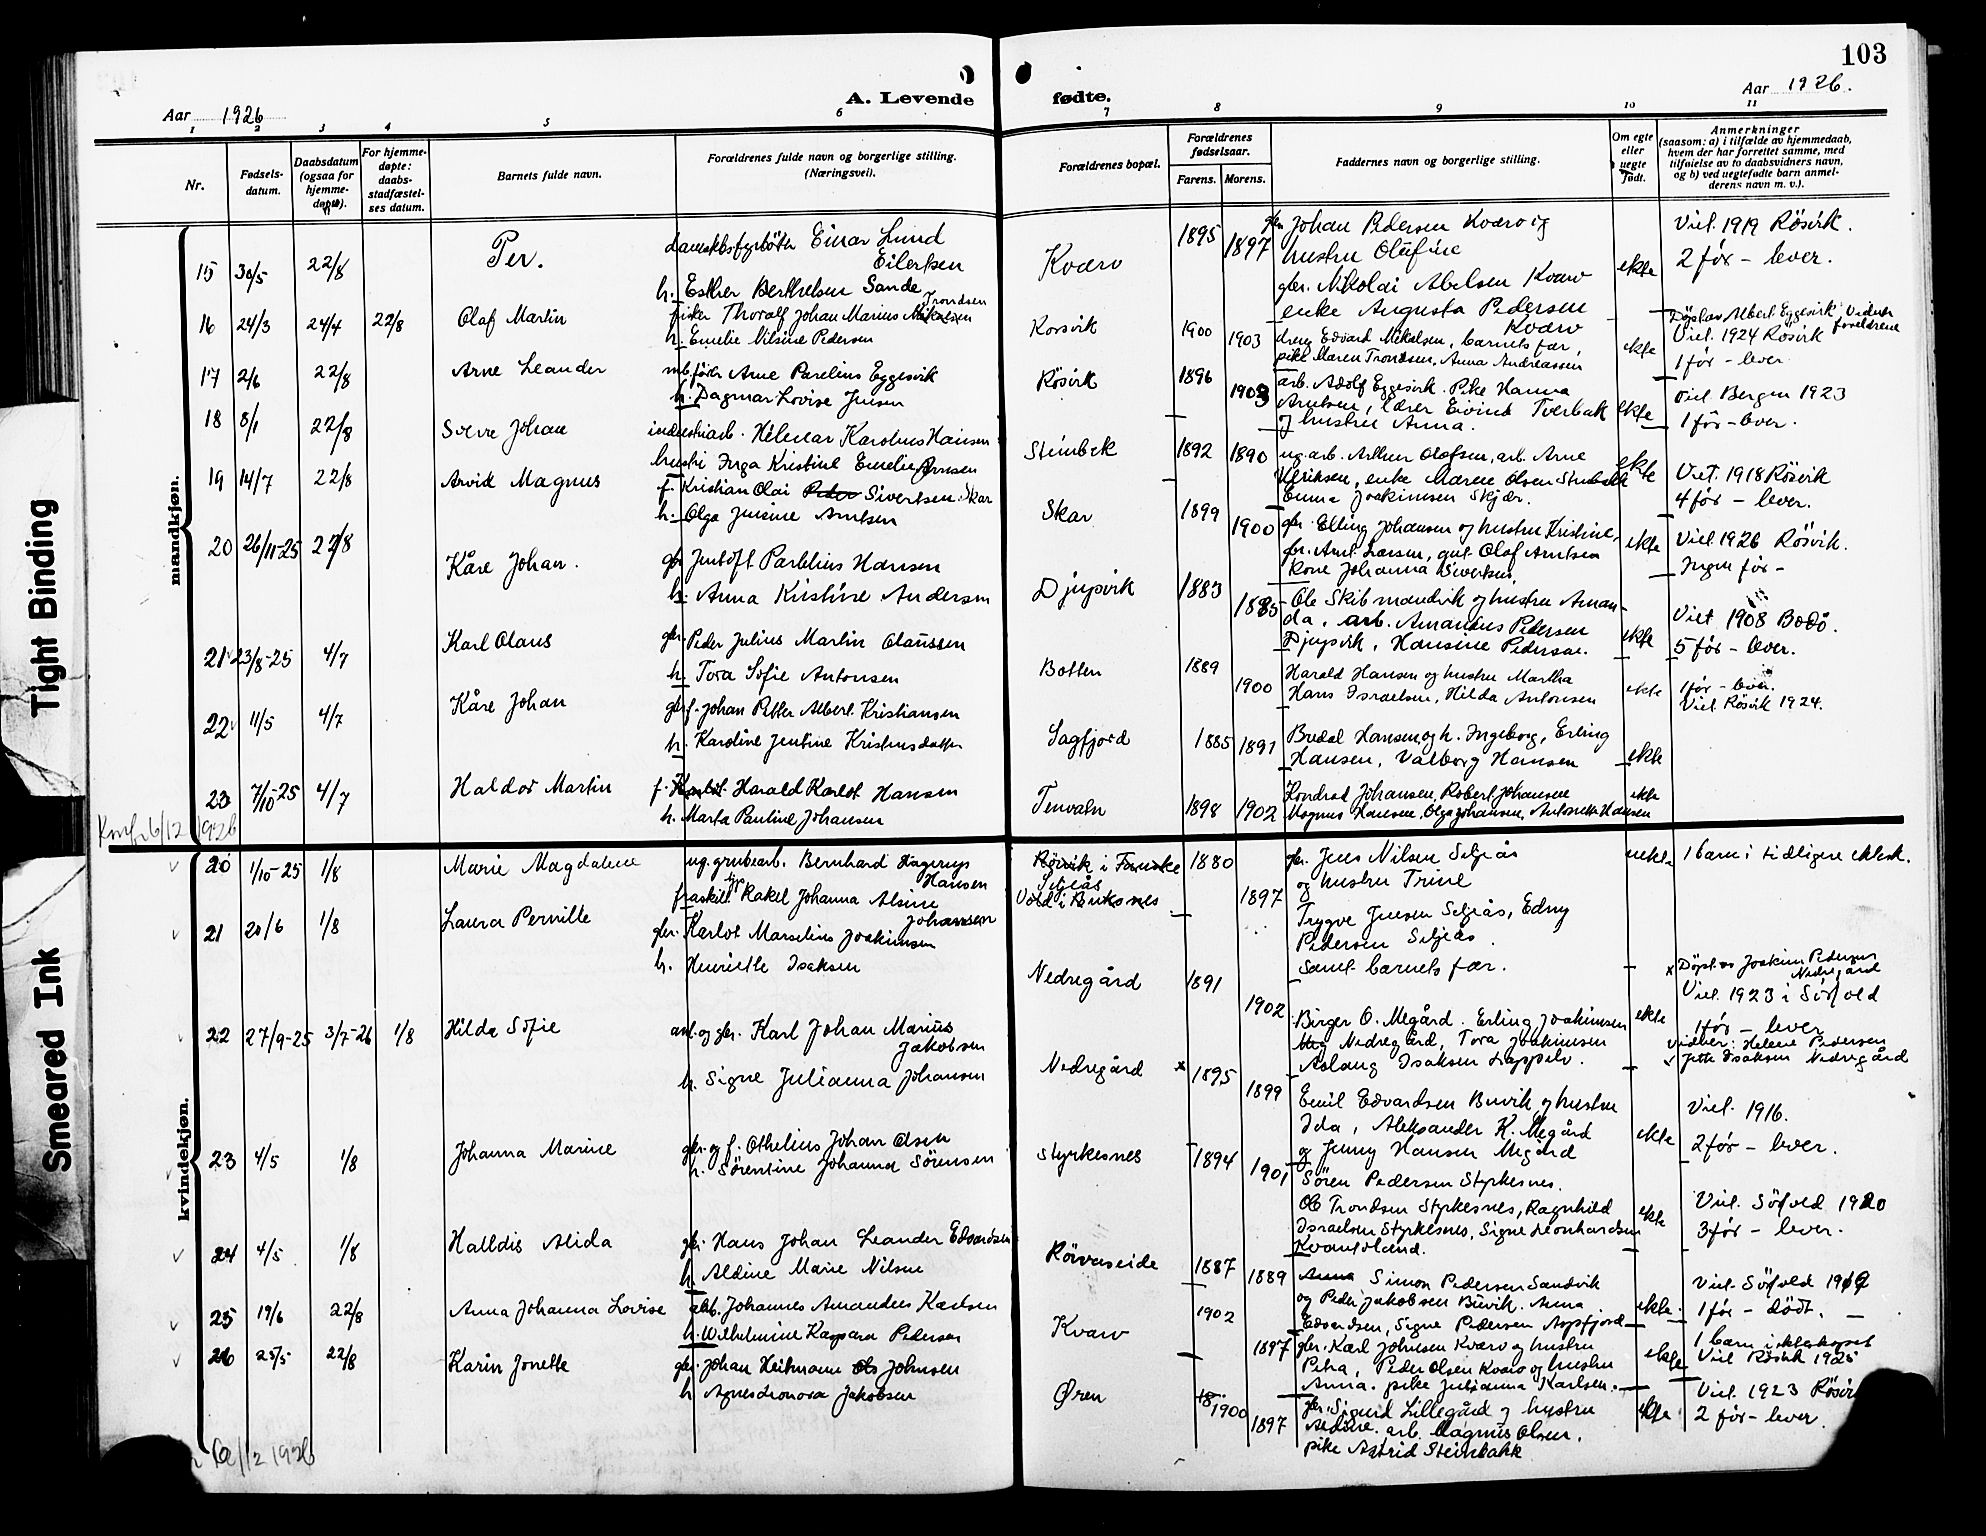 103
Aar 1926
A. Levende
fødte.
Aar 1926.
1 2 3 4 5 6 7 8 9 10 11
Nr.
Fødsels-
datum.
Daabsdatum
(ogsaa for
hjemme-
døpte).
For hjemme-
døpte:
daabs-
stadfæstel-
ses datum.
Barnets fulde navn.
Forældrenes fulde navn og borgerlige stilling.
(Næringsvei).
Forældrenes bopæl.
Forældrenes
fødselsaar.
Farens. Morens.
Faddernes navn og borgerlige stilling.
Om egte
eller
uegte
født.
Anmerkninger
(saasom: a) i tilfælde av hjemmedaab,
hvem der har forrettet samme, med
tilføielse av to daabsvidners navn,
og b) ved uegtefødte barn anmel-
derens navn m. v.).
mandkjøn.
15 30/5 22/8 Per.
Einar Lund
Eilertsen
h. Esther Berthelsen Sande
Kvarv 1895 1897
gbr. Johan Pedersen Kvarvig
hustru Olufine
gbr. Nikolai Abelsen Kvarv
enke Augusta Pedersen
Kvarv
ekte
Viet 1919 Rösvik.
2 för - lever.
16 24/3 24/4 22/8 Olaf Martin
fisker Thoralf Johan Marius Mikalsen
Trondsen
h. Emelie Nilsine Pedersen
Korsvik 1900 1903
dreng Edvard Mikalsen, barnets far,
pike Maren Trondsen, Anna Andreassen
ekte
Döpt av Albert Eggesvik. Vidner
foreldrene
Viet 1924 Rösvik
1 för - lever
17 2/6 22/8 Arne Leander
Arne Parelius Eggesvik
h. Dagmar Lovise Jensen
Rösvik 1896 1903
arb. Adolf Eggesvik. Pike Hanna
Arntsen, lærer Eivind Tverbak
og hustru Anna.
ekte
viet Bergen 1923
1 för - lever.
18 8/1 22/8 Sverre Johan
industriarb. Hilmar Karolius Hansen
hustru Inga Kristine Emelie Jensen
Steinbak 1892 1890
ug. arb. Arthur Olofsen, arb. Arne
Ulriksen, enke Maren Olsen Steinbakk
Emma Joakimsen Skjær.
ekte
Viet 1918 Rösvik
4 för - lever.
19 14/7 22/8 Arvid Magnus
f. Kristian Olai Peder Sivertsen Skar
h. Olga Jensine Arntsen
Skar 1899 1900
gbr. Elling Johansen og hustru Kristine,
gbr. Arnt Larsen, gut Olaf Arntsen
kone Johanna Sivertsen.
ekte
Viet 1926 Rösvik.
Ingen för -
20 26/11-25 22/8 Kåre Johan.
gbr Jentoft Parelius Hansen
h. Anna Kristine Andersen
Djupvik 1883 1885
Ole Skibmandvik og hustru Aman-
da, arb. Amandus Pedersen
Djupvik, Hansine Pedersen.
ekte
Viet 1908 Bodö.
5 för - lever.
21 23/8-25 4/7 Karl Olaus
gbr. Peder Julius Martin Olaussen
h. Tora Sofie Antonsen
Botten 1889 1900
Harald Hansen og hustru Martha
Hans Israelsen, Hilda Antonsen
ekte
1 för - lever.
Viet Rösvik 1924.
22 11/5 4/7 Kåre Johan
gbr f. Johan Petter Albert Kristiansen
h. Karoline Jentine Kristensdatter
Sagfjord 1885 1891
Bredal Hansen og h. Ingeborg, Erling
Hansen, Valborg Hansen
ekte
23 7/10-25 4/7 Haldor Martin
f. Harald Karlot Hansen
h. Marta Pauline Johansen
Tennvatn 1898 1902
Kondrad Johansen, Robert Johansen
Magnus Hansen, Olga Johansen, Antonette Hansen
ekte
Konf. 26/12 1926
kvindekjøn.
20 1/10-25 1/8 Marie Magdalene
ug. grubearb. Bernhard Hagerup
Hansen
fraskilt Rakel Johanna Alvine
Johansen
Rösvik i Fauske
Seljeås
Vold i Buksnes
1880 1897
gbr. Jens Nilsen Seljeås
og hustru Trine
Trygve Jensen Seljeås, Edny
Pedersen Seljeås.
Samt barnets far.
uekte
1 barn i tidligere ektesk.
21 20/6 1/8 Laura Pernille
gbr. Karlot Marselius Joakimsen
h. Henriette Isaksen
Nedregård 1891 1902
Birger O. Megård. Erling Joakimsen
Nedregård, Tora Joakimsen
Aslaug Isaksen Lappelv.
ekte
x Döpt av Joakim Pedersen
Nedregård
Viet 1923 i Sörfold
1 för - lever
vidner: Helene Pedersen
Jette Isaksen Nedregård
22 27/9-25 3/7-26 1/8 Hilda Sofie
arb. og gbr. Karl Johan Marius
Jakobsen
h. Signe Julianna Johansen
Nedregård x 1895 1899
Emil Edvardsen Buvik og hustru
Ida, Aleksander K. Megård
og Jenny Hansen Megård
ekte
Viet 1916.
2 för - lever.
23 4/5 1/8 Johanna Marine
gbr. og f. Othelius Johan Olsen
h. Sörentine Johanna Sörensen
Styrkesnes 1894 1901
Sören Pedersen Styrkesnes.
Ole Trondsen Styrkesnes, Ragnhild
Israelsen Styrkesnes, Signe Leonhardsen
Kvanfoland.
ekte
Viet Sörfold 1920
3 för - lever.
24 4/5 1/8 Halldis Alida
gbr. Hans Johan Leander Edvardsen
h. Aldine Marie Nilsen
Rörvasseide 1887 1889
Anna Simon Pedersen Sandvik
og Peder Jakobsen Buvik. Anna
Edvardsen, Signe Pedersen Aspfjord
ekte.
Viet Sörfold 1919
1 för - dödt.
25 19/6 22/8 Anna Johanna Lovise
arb. Johannes Amandus Karlsen
h. Wilhelmine Kaspara Pedersen
Kvarv 1902 1897
gbr. Karl Johnsen Kvarv og hustru
Petra, Peder Olsen Kvarv og hustru
Anna. pike Julianna Karlsen.
ekte
1 barn i ekteskapet
Viet Rösvik 1925
26 25/5 22/8 Karin Jonette
gbr. Johan Heitmann Johnsen
h Agnes Leonora Jakobsen
Øren 1900 1897
gbr. Sigurd Lillegård og hustru
Aldine. arb. Magnus Olsen.
pike Astrid Steinbakk
ekte
Viet 1923 Rösvik
2 för - lever.
12 1926
Tight Binding
Smeared Ink